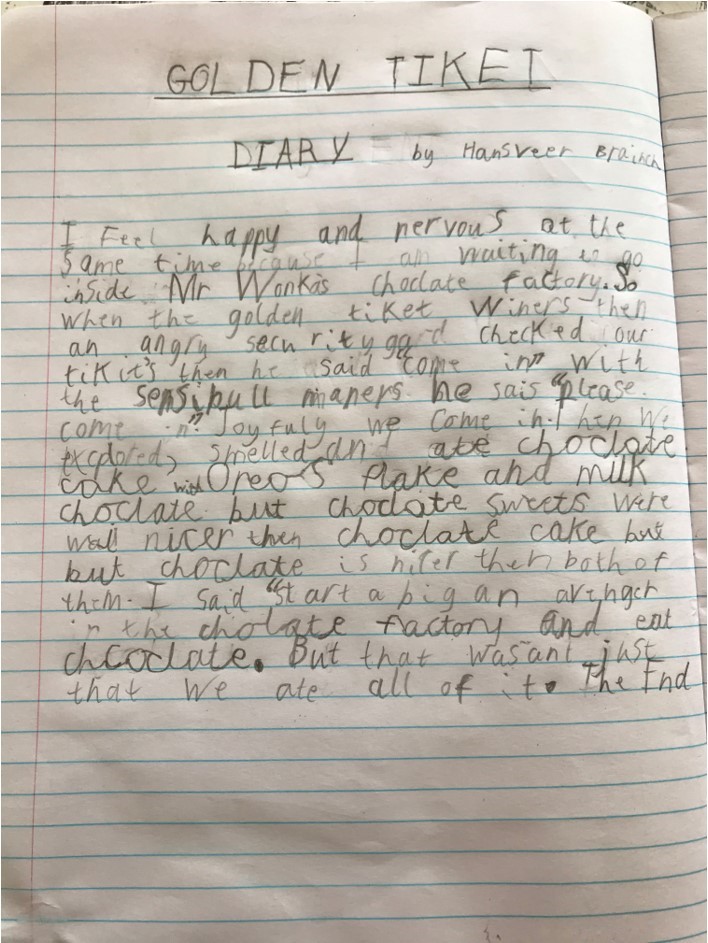 GOLDEN TIKET
DIARY by Hansveer Brainch
I Feel happy and nervous at the
same time because I am waiting to go
inside Mr Wonka's choclate factory. So
when the golden tiket winers then
an angry security gard checked our
tikit's then he said "come in" with
the sensibull maners he sais "please
come in" Joyfuly we come in. Then we
explored, smelled and ate choclate
cake with Oreo's flake and milk
choclate but choclate sweets were
wall nicer then choclate cake but
but choclate is nicer then both of
them. I said "start a big an
in the cholate factory and eat
chcoclate. But that wasant just
that we ate all of it. The End